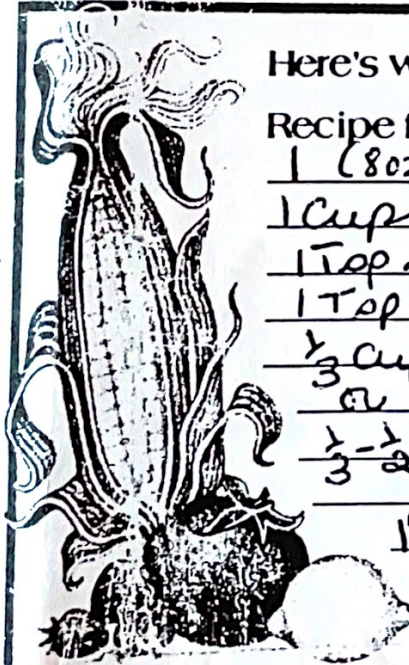 Here's w
Recipe f
1 (8oz
1 Cup
1 Tsp
1 Tsp
1/3 Cup
or
1/3 - 1/2
1